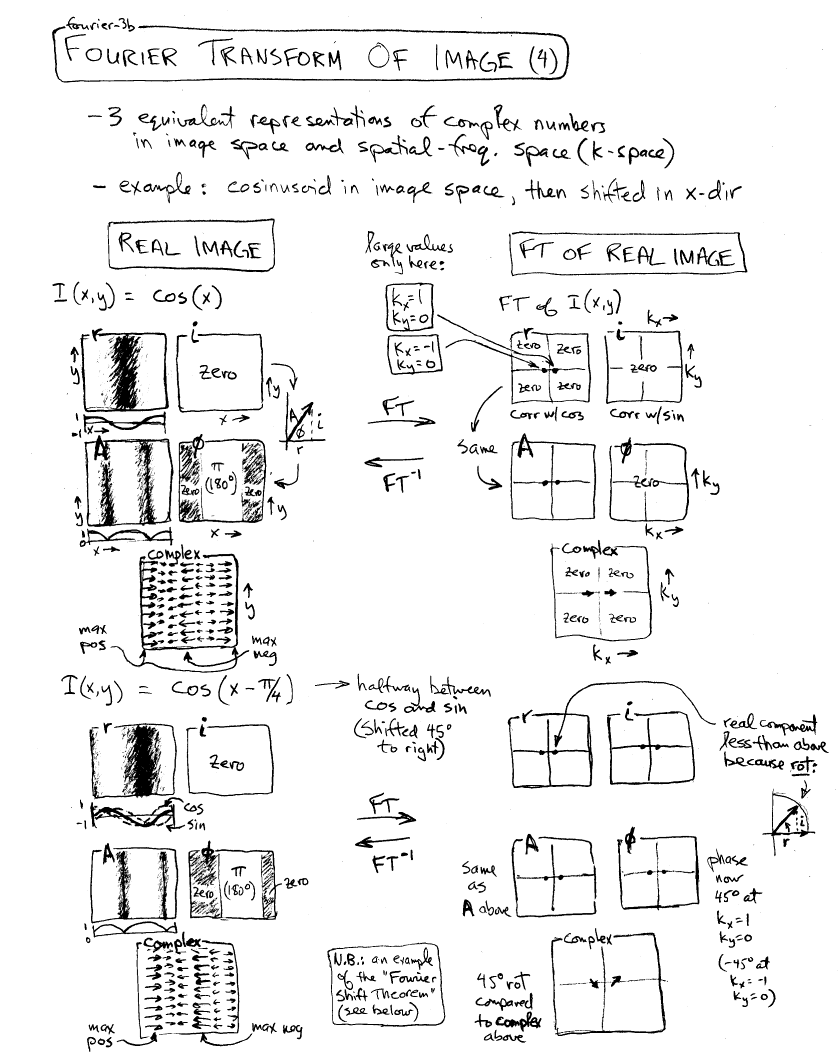 fourier-3b
FOURIER TRANSFORM OF IMAGE (4)
- 3 equivalent representations of complex numbers
in image space and spatial-freq. space (k-space)
- example: cosinusoid in image space, then shifted in x-dir
REAL IMAGE
large values
only here:
FT OF REAL IMAGE
I(x,y) = cos(x)
kx=1
ky=0
kx=-1
ky=0
FT of I(x,y)
kx →
r
i
zero
↑ y
↑ y
x →
1
-1
x →
A
φ
i
r
FT
FT⁻¹
r
zero
zero
zero
zero
corr w/cos
i
zero
corr w/sin
↑ ky
same
A
φ
zero
π
(180°)
zero
↑ y
↑ y
x →
1
0
x →
A
φ
zero
↑ ky
kx →
complex
↑ y
max
pos
max
neg
complex
zero
zero
zero
zero
↑ ky
kx →
I(x,y) = cos(x - π/4) → halfway between
cos and sin
(shifted 45°
to right)
r
i
zero
1
-1
cos
sin
FT
FT⁻¹
r
i
real component
less than above
because rot:
i
r
A
φ
zero
π
(180°)
zero
1
0
same
as
A above
A
φ
phase
now
45° at
kx=1
ky=0
(-45° at
kx=-1
ky=0)
complex
max
pos
max neg
N.B.: an example
of the "Fourier
Shift Theorem"
(see below)
45° rot
compared
to complex
above
complex